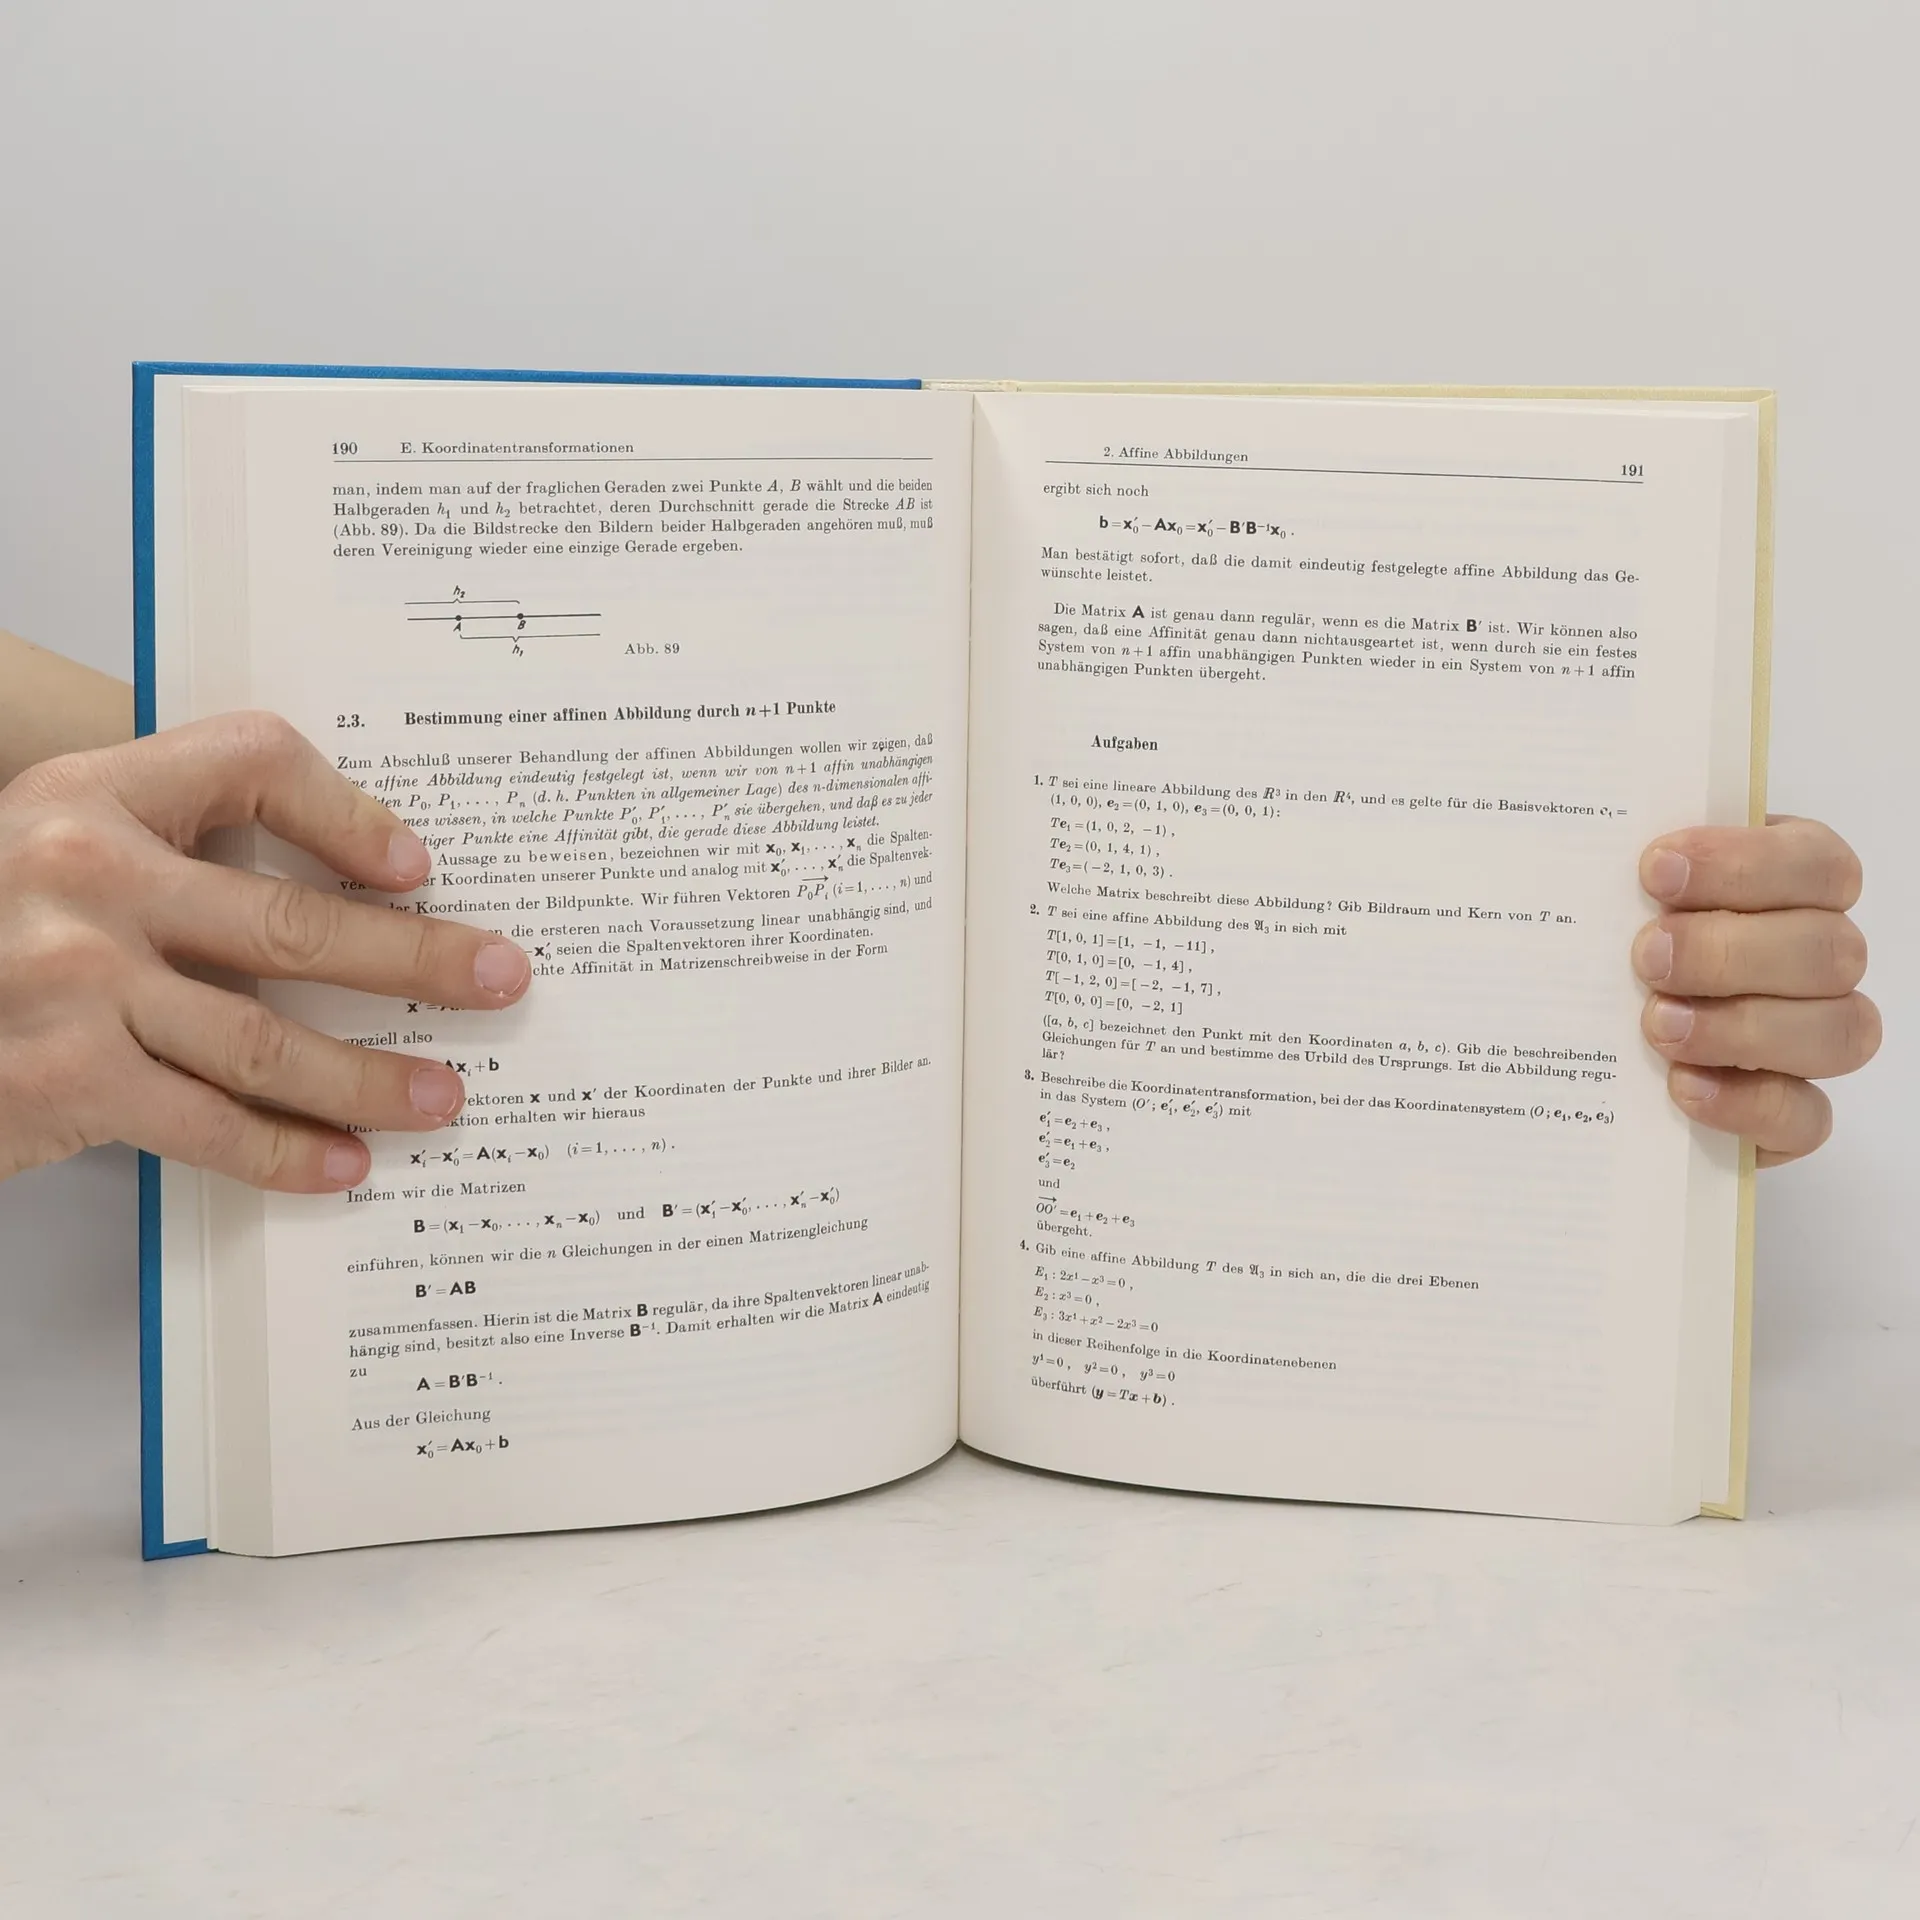 190 E. Koordinatentransformationen
man, indem man auf der fraglichen Geraden zwei Punkte A, B wählt und die beiden
Halbgeraden h₁ und h₂ betrachtet, deren Durchschnitt gerade die Strecke AB ist
(Abb. 89). Da die Bildstrecke den Bildern beider Halbgeraden angehören muß, muß
deren Vereinigung wieder eine einzige Gerade ergeben.
h₂
A B
h₁ Abb. 89
2.3. Bestimmung einer affinen Abbildung durch n+1 Punkte
Zum Abschluß unserer Behandlung der affinen Abbildungen wollen wir zeigen, daß
affine Abbildung eindeutig festgelegt ist, wenn wir von n+1 affin unabhängigen
P₀, P₁, ..., Pₙ (d. h. Punkten in allgemeiner Lage) des n-dimensionalen affi-
wissen, in welche Punkte P₀′, P₁′, ..., Pₙ′ sie übergehen, und daß es zu jeder
Punkte eine Affinität gibt, die gerade diese Abbildung leistet.
Aussage zu beweisen, bezeichnen wir mit x₀, x₁, ..., xₙ die Spalten-
er Koordinaten unserer Punkte und analog mit x₀′, ..., xₙ′ die Spaltenvek-
Koordinaten der Bildpunkte. Wir führen Vektoren P₀Pᵢ (i=1, ..., n) und
die ersteren nach Voraussetzung linear unabhängig sind, und
−x₀′ seien die Spaltenvektoren ihrer Koordinaten.
chte Affinität in Matrizenschreibweise in der Form
x′
speziell also
xᵢ+b
ektoren x und x′ der Koordinaten der Punkte und ihrer Bilder an.
ktion erhalten wir hieraus
xᵢ′−x₀′=A(xᵢ−x₀) (i=1, ..., n).
Indem wir die Matrizen
B=(x₁−x₀, ..., xₙ−x₀) und B′=(x₁′−x₀′, ..., xₙ′−x₀′)
einführen, können wir die n Gleichungen in der einen Matrizengleichung
B′=AB
zusammenfassen. Hierin ist die Matrix B regulär, da ihre Spaltenvektoren linear unab-
hängig sind, besitzt also eine Inverse B⁻¹. Damit erhalten wir die Matrix A eindeutig
zu
A=B′B⁻¹.
Aus der Gleichung
x₀′=Ax₀+b
2. Affine Abbildungen 191
ergibt sich noch
b=x₀′−Ax₀=x₀′−B′B⁻¹x₀.
Man bestätigt sofort, daß die damit eindeutig festgelegte affine Abbildung das Ge-
wünschte leistet.
Die Matrix A ist genau dann regulär, wenn es die Matrix B′ ist. Wir können also
sagen, daß eine Affinität genau dann nichtausgeartet ist, wenn durch sie ein festes
System von n+1 affin unabhängigen Punkten wieder in ein System von n+1 affin
unabhängigen Punkten übergeht.
Aufgaben
1. T sei eine lineare Abbildung des R³ in den R⁴, und es gelte für die Basisvektoren e₁=
(1, 0, 0), e₂=(0, 1, 0), e₃=(0, 0, 1):
Te₁=(1, 0, 2, −1),
Te₂=(0, 1, 4, 1),
Te₃=(−2, 1, 0, 3).
Welche Matrix beschreibt diese Abbildung? Gib Bildraum und Kern von T an.
2. T sei eine affine Abbildung des 𝔄₃ in sich mit
T[1, 0, 1]=[1, −1, −11],
T[0, 1, 0]=[0, −1, 4],
T[−1, 2, 0]=[−2, −1, 7],
T[0, 0, 0]=[0, −2, 1]
([a, b, c] bezeichnet den Punkt mit den Koordinaten a, b, c). Gib die beschreibenden
Gleichungen für T an und bestimme des Urbild des Ursprungs. Ist die Abbildung regu-
lär?
3. Beschreibe die Koordinatentransformation, bei der das Koordinatensystem (O; e₁, e₂, e₃)
in das System (O′; e₁′, e₂′, e₃′) mit
e₁′=e₂+e₃,
e₂′=e₁+e₃,
e₃′=e₂
und
OO′=e₁+e₂+e₃
übergeht.
4. Gib eine affine Abbildung T des 𝔄₃ in sich an, die die drei Ebenen
E₁: 2x¹−x³=0,
E₂: x³=0,
E₃: 3x¹+x²−2x³=0
in dieser Reihenfolge in die Koordinatenebenen
y¹=0, y²=0, y³=0
überführt (y=Tx+b).